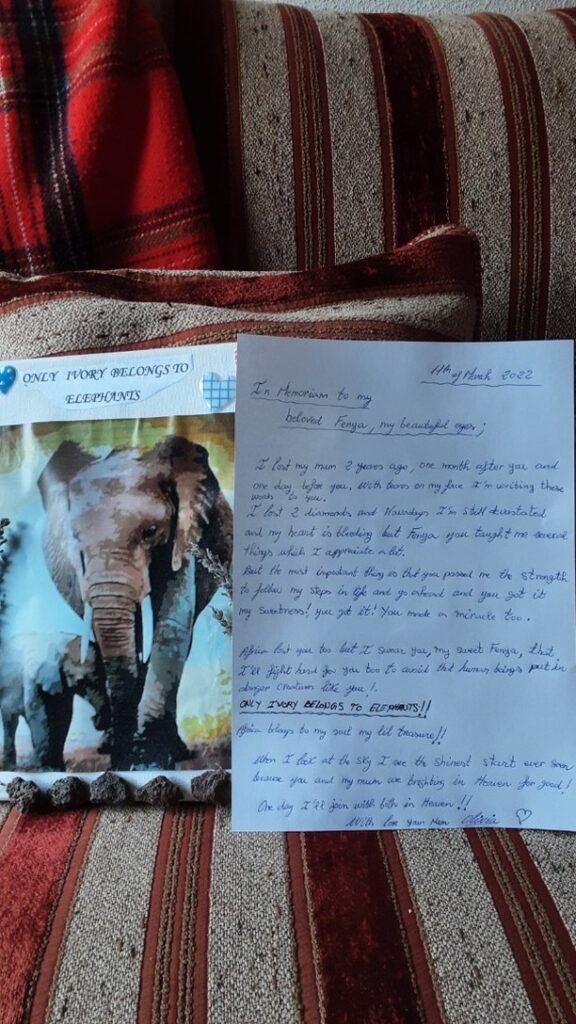 ONLY IVORY BELONGS TO
ELEPHANTS
11th of March 2022
In Memoriam to my
beloved Fenya, my beautiful eyes;
I lost my mum 2 years ago, one month after you and
one day before you. With tears on my face I'm writing these
words to you.
I lost 2 diamonds and Nowadays I'm still devastated
and my heart is bleeding but Fenya you taught me several
things which I appreciate a lot.
But the most important thing is that you passed me the strength
to follow my steps in life and go ahead and you got it
my sweetness! you got it! You made a miracle too.
Africa lost you too but I swear you, my sweet Fenya, that
I'll fight hard for you too to avoid that human beings put in
danger creatures like you!.
ONLY IVORY BELONGS TO ELEPHANTS!!
Africa belongs to my soul my lil treasure!!
When I look at the sky I see the shinest start ever seen
because you and my mum are brighting in Heaven for good!
One day I'll join with both in Heaven!!
With love your Mum Olivia